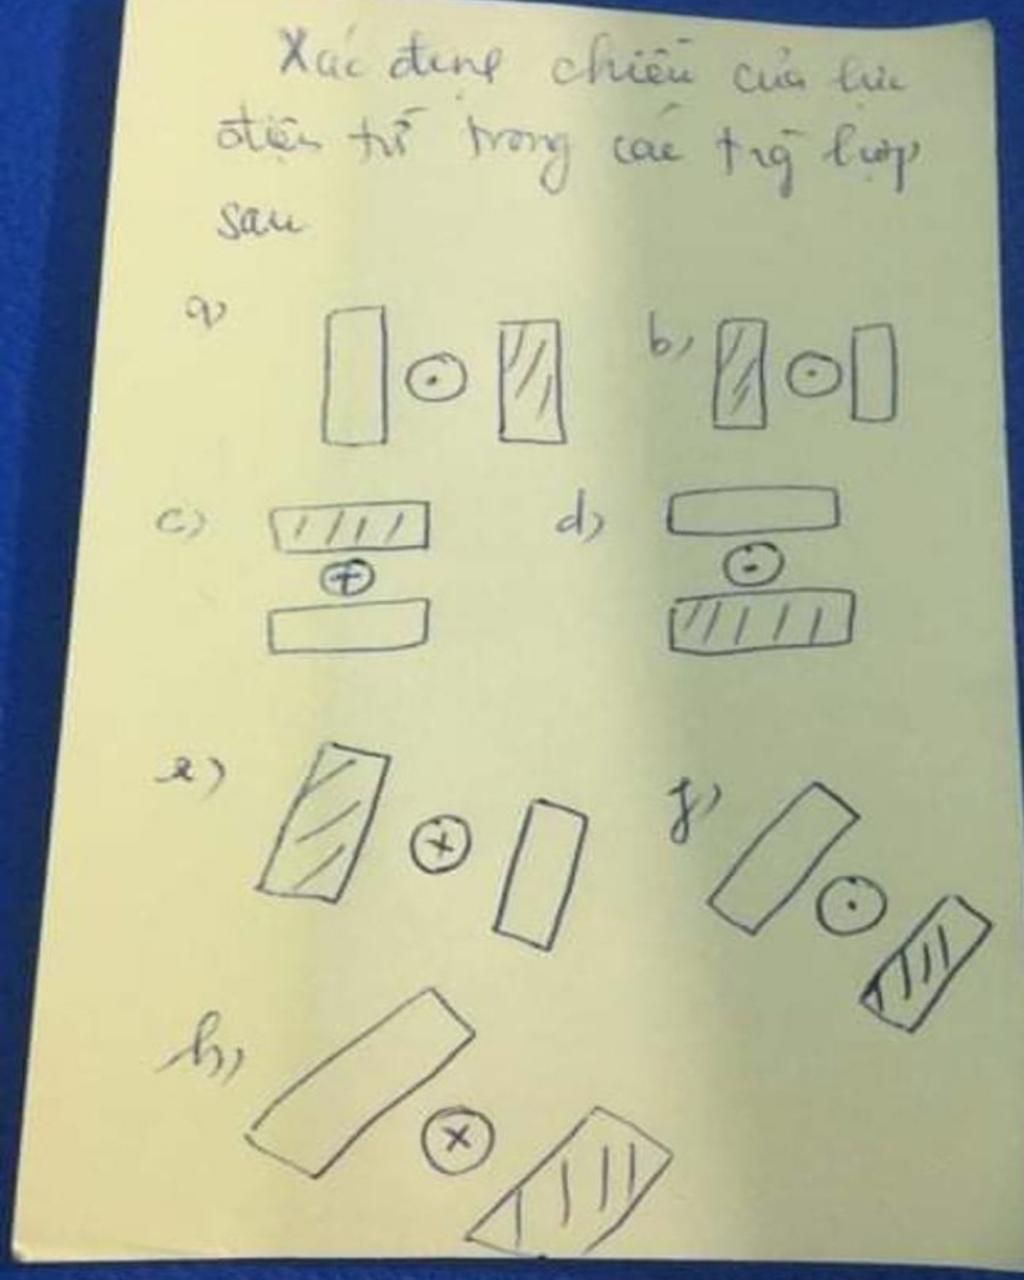 Xác định chiều của lực
điện từ trong các trg hợp
sau
a)
b)
c)
d)
e)
f)
h)